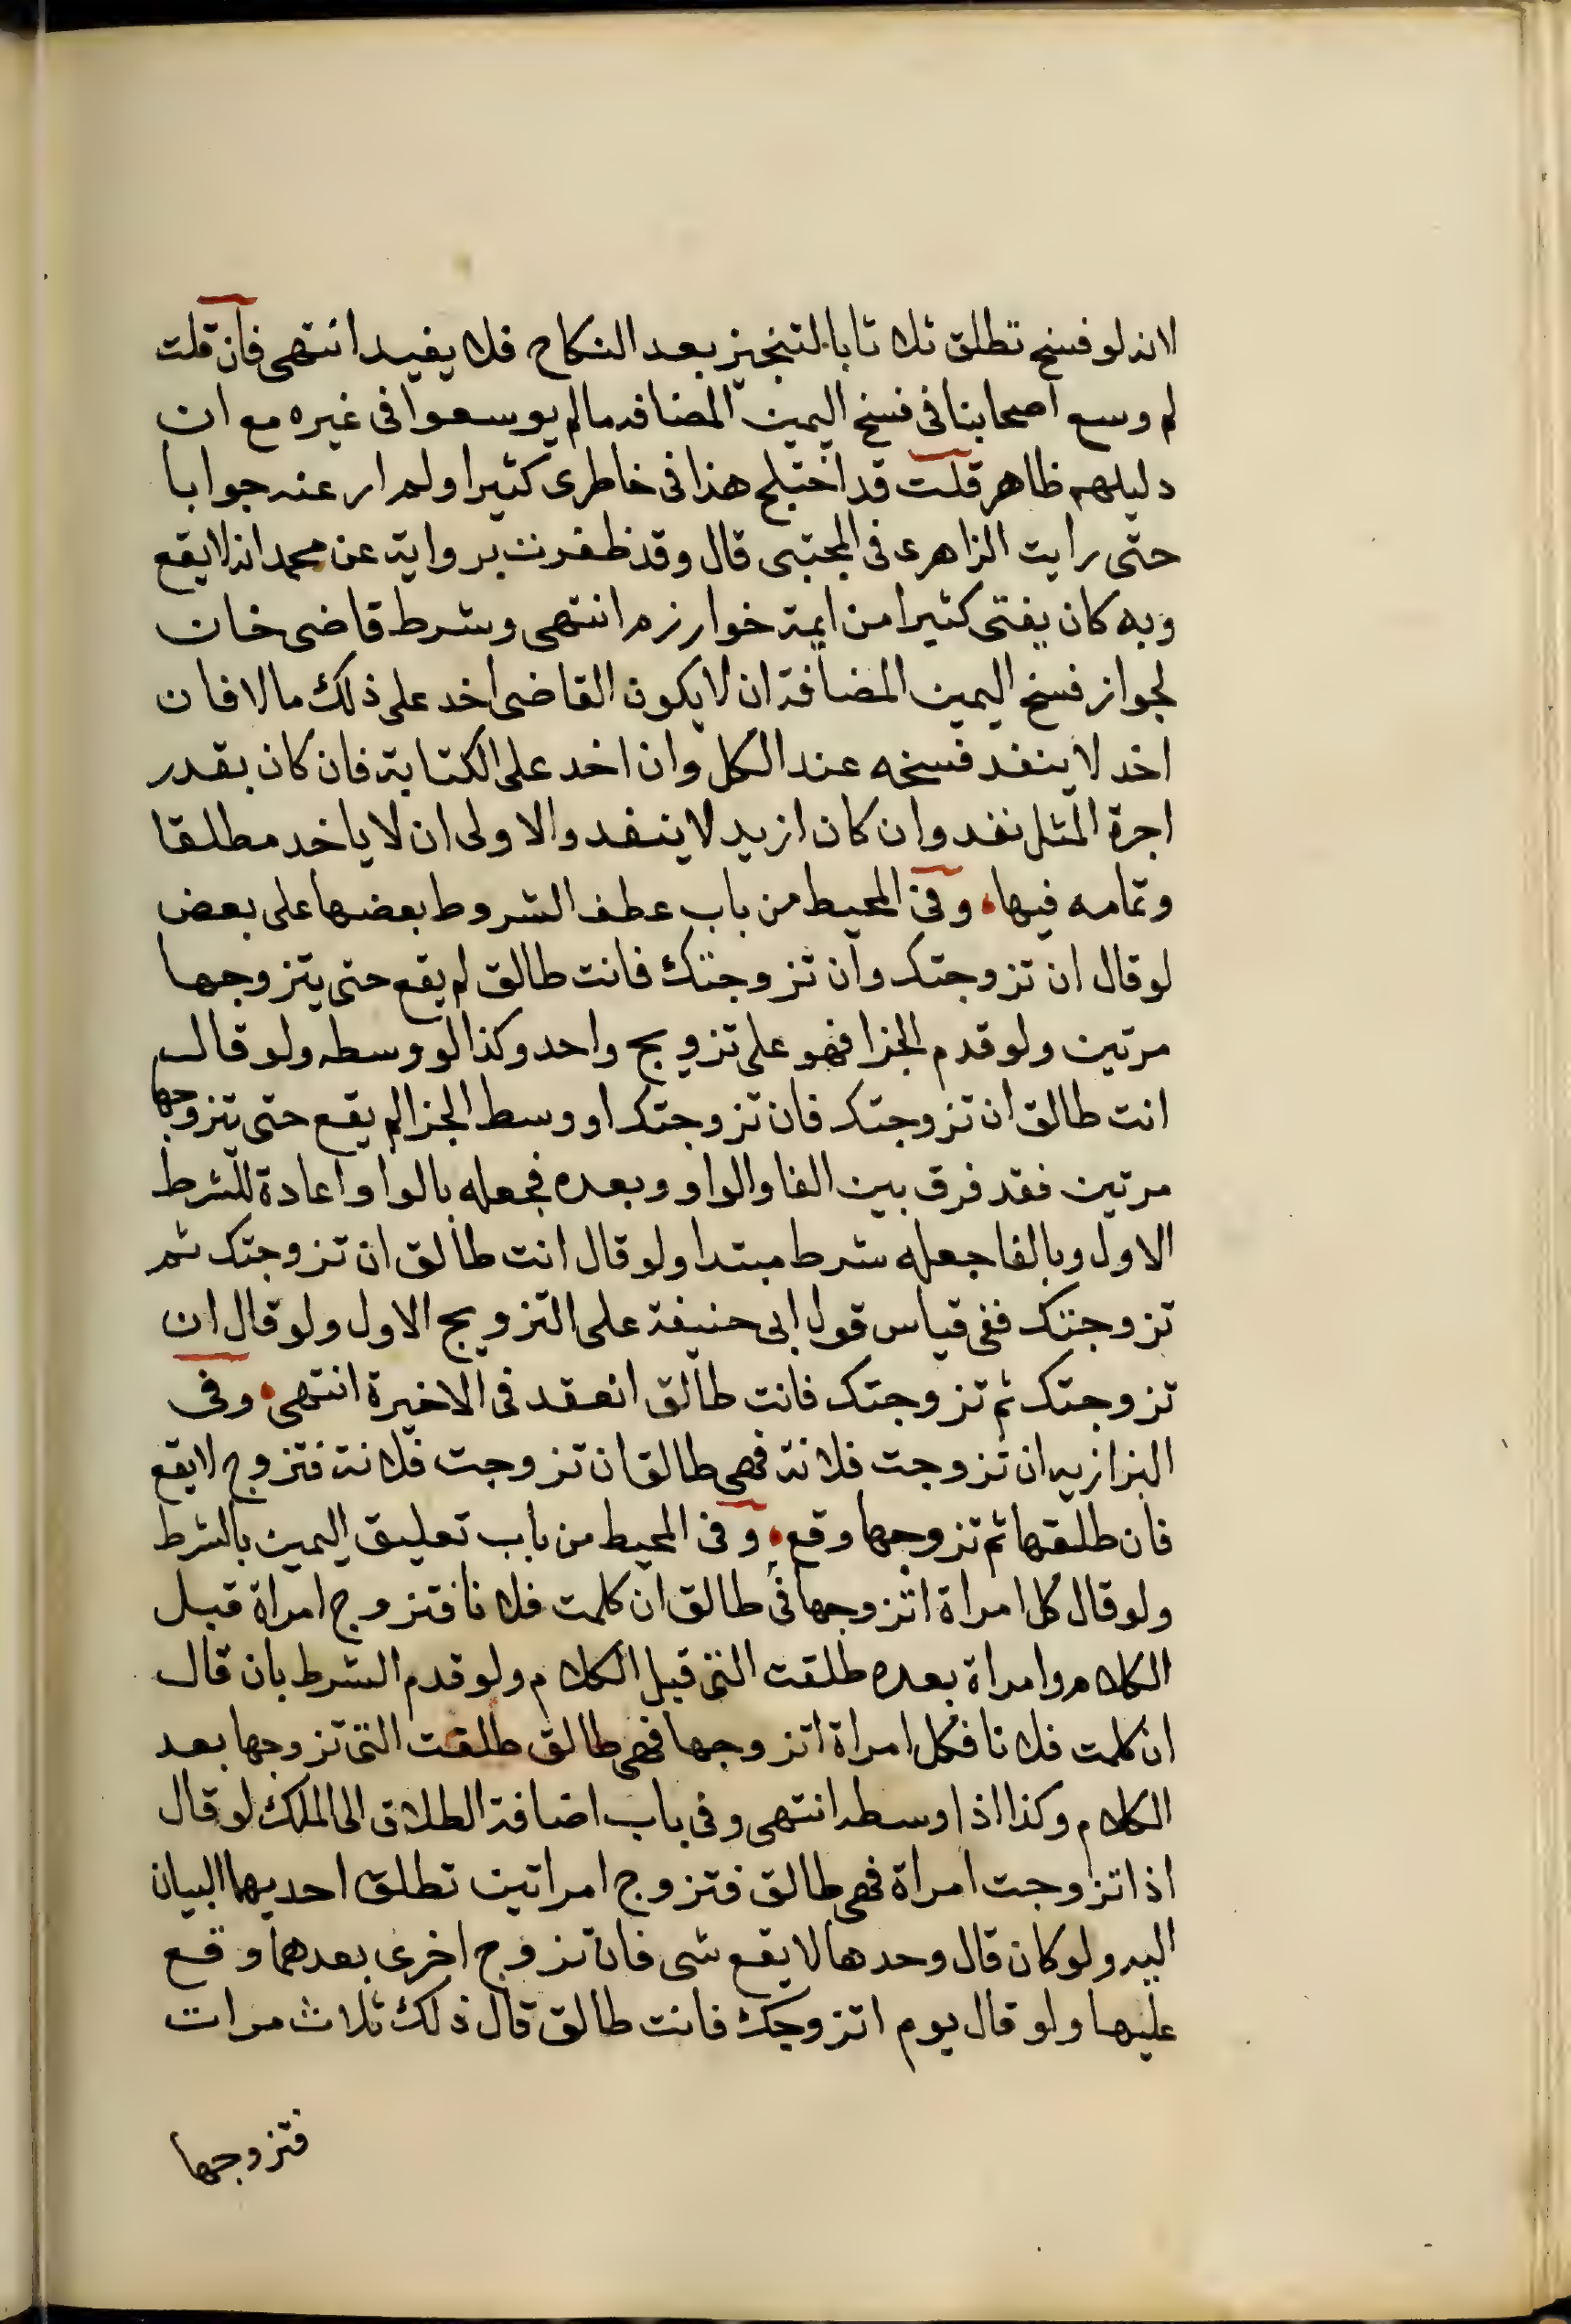 لانه لو فسخ تطلق ثلاثا بالتنجيز بعد النكاح فلا يفيد انتهى فان قلت
لم وسع اصحابنا فى فسخ اليمين المضافه مالم يوسعوا فى غيره مع ان
دليلهم ظاهر قلت قد اختلج هذا فى خاطرى كثيرا ولم ار عنه جوابا
حتى رايت الزاهرى فى المجتبى قال وقد ظفرت برواية عن محمد انه لا يقع
وبه كان يفتى كثيرا من ايمة خوارزم انتهى وشرط قاضى خان
لجواز فسخ اليمين المضافة ان لا يكون القاضى اخد على ذلك مالا فان
اخد لا ينفد فسخه عند الكل وان اخد على الكتابة فان كان بقدر
اجرة المثل نفد وان كان ازيد لا ينفد والاولى ان لا ياخد مطلقا
وتمامه فيها، وفى المحيط من باب عطف الشروط بعضها على بعض
لو قال ان تزوجتك وان تزوجتك فانت طالق لم يقع حتى يتزوجها
مرتين ولو قدم الجزا فهو على تزويج واحد وكذا لو وسطه ولو قال
انت طالق ان تزوجتك فان تزوجتك او وسط الجزا لم يقع حتى يتزوجها
مرتين فقد فرق بين الفا والواو وبعده فجعله بالواو اعادة للشرط
الاول وبالفا جعله شرط مبتدا ولو قال انت طالق ان تزوجتك ثم
تزوجتك ففى قياس قول ابى حنيفة على التزويج الاول ولو قال ان
تزوجتك ثم تزوجتك فانت طالق انعقد فى الاخيرة انتهى، وفى
البزازيه ان تزوجت فلانة فهى طالق ان تزوجت فلانة فتزوج لا يقع
فان طلقها ثم تزوجها وقع، وفى المحيط من باب تعليق اليمين بالشرط
ولو قال كل امراة اتزوجها فهى طالق ان كلمت فلانا فتزوج امراة قبل
الكلام وامراة بعده طلقت التى قبل الكلام ولو قدم الشرط بان قال
ان كلمت فلانا فكل امراة اتزوجها فهى طالق طلقت التى تزوجها بعد
الكلام وكذا اذا وسطه انتهى وفى باب اضافة الطلاق الى الملك لو قال
اذا تزوجت امراة فهى طالق فتزوج امراتين تطلق احديهما البيان
اليه ولو كان قال وحدها لا يقع شى فان تزوج اخرى بعدهما وقع
عليها ولو قال يوم اتزوجك فانت طالق قال ذلك ثلاث مرات
فتزوجها